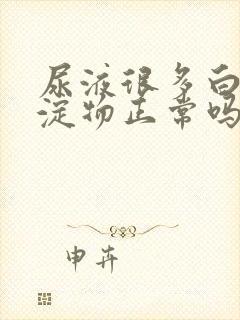 尿液很多白
淀物正常吗
申卉